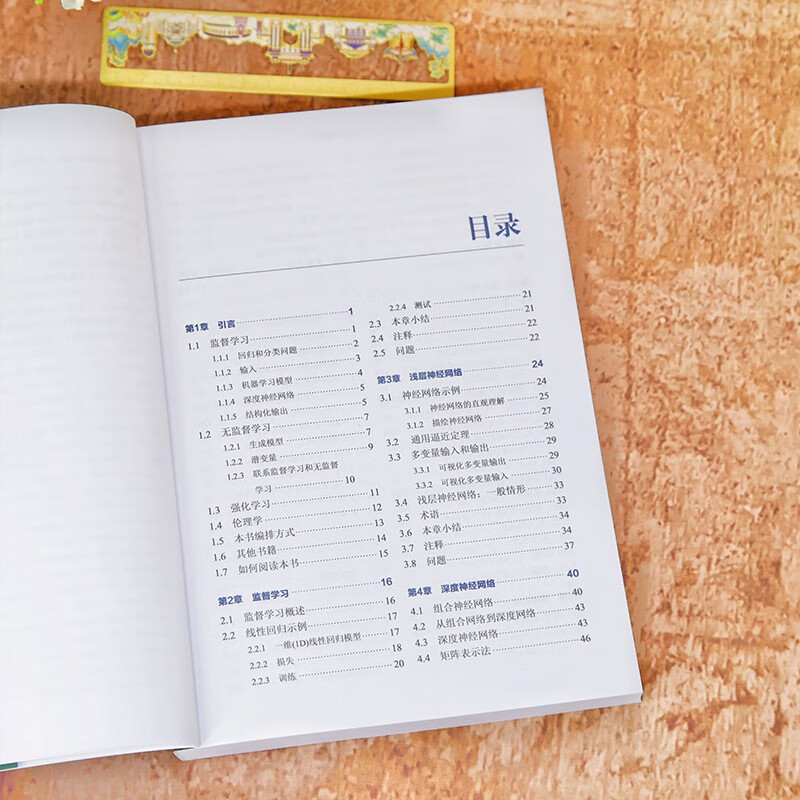 目录
第1章 引言 1
1.1 监督学习 1
1.1.1 回归和分类问题 2
1.1.2 输入 3
1.1.3 机器学习模型 4
1.1.4 深度神经网络 5
1.1.5 结构化输出 5
1.2 无监督学习 7
1.2.1 生成模型 7
1.2.2 潜变量 9
1.2.3 联系监督学习和无监督
学习 10
1.3 强化学习 11
1.4 伦理学 12
1.5 本书编排方式 13
1.6 其他书籍 14
1.7 如何阅读本书 15
第2章 监督学习 16
2.1 监督学习概述 16
2.2 线性回归示例 17
2.2.1 一维(1D)线性回归模型 17
2.2.2 损失 18
2.2.3 训练 20
2.2.4 测试 21
2.3 本章小结 21
2.4 注释 22
2.5 问题 22
第3章 浅层神经网络 24
3.1 神经网络示例 24
3.1.1 神经网络的直观理解 25
3.1.2 描绘神经网络 27
3.2 通用逼近定理 28
3.3 多变量输入和输出 29
3.3.1 可视化多变量输出 29
3.3.2 可视化多变量输入 30
3.4 浅层神经网络：一般情形 33
3.5 术语 33
3.6 本章小结 34
3.7 注释 34
3.8 问题 37
第4章 深度神经网络 40
4.1 组合神经网络 40
4.2 从组合网络到深度网络 43
4.3 深度神经网络 43
4.4 矩阵表示法 46